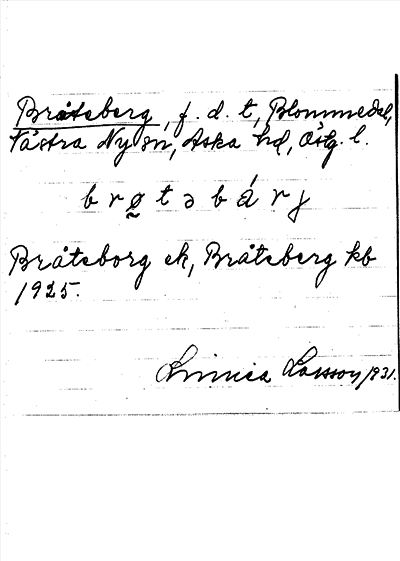 Bråteberg, f. d. t, Blommedal,
Västra Ny sn, Aska hd, Östg. l.
b r ø̰ t ə b á r ȷ
Bråteborg ek, Bråteberg kb
1925.
Linnea Larsson 1931.